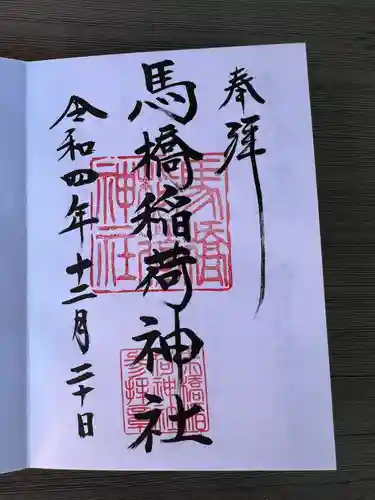 奉拝
馬橋稲荷神社
令和四年十二月二十日
馬橋稲荷神社
馬橋稲荷神社参拝章